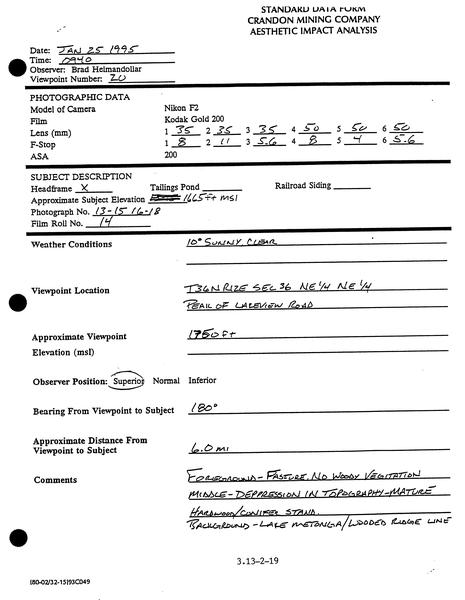 STANDARD DATA FORM
CRANDON MINING COMPANY
AESTHETIC IMPACT ANALYSIS
Date: JAN 25 1995
Time: 0940
Observer: Brad Heimandollar
Viewpoint Number: 20
PHOTOGRAPHIC DATA
Model of Camera Nikon F2
Film Kodak Gold 200
Lens (mm) 1 35 2 35 3 35 4 50 5 50 6 50
F-Stop 1 8 2 11 3 5.6 4 8 5 4 6 5.6
ASA 200
SUBJECT DESCRIPTION
Headframe X Tailings Pond Railroad Siding
Approximate Subject Elevation 1665 ft msl
Photograph No. 13-15 16-18
Film Roll No. 14
Weather Conditions 10° SUNNY, CLEAR
Viewpoint Location T36N R12E SEC 36 NE 1/4 NE 1/4
PEAK OF LAKEVIEW ROAD
Approximate Viewpoint 1750 ft
Elevation (msl)
Observer Position: Superior Normal Inferior
Bearing From Viewpoint to Subject 180°
Approximate Distance From
Viewpoint to Subject 6.0 mi
Comments FOREGROUND - PASTURE, NO WOODY VEGITATION
MIDDLE - DEPPRESSION IN TOPOGRAPHY - MATURE
HARDWOOD/CONIFER STAND.
BACKGROUND - LAKE METONGA/WOODED RIDGE LINE
3.13-2-19
(80-02/32-15)93C049